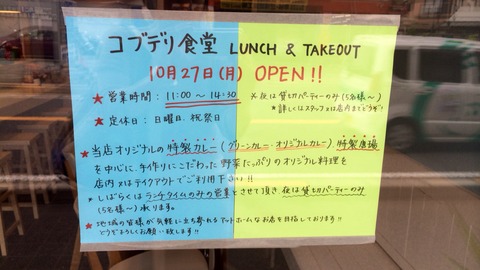 コブデリ食堂 LUNCH & TAKEOUT
10月27日(月) OPEN!!
★営業時間:11:00～14:30 ※夜は貸切パーティーのみ(5名様～)
※詳しくはスタッフ又は店内までどうぞ!
★定休日:日曜日、祝祭日
★当店オリジナルの特製カレー(グリーンカレー・オリジナルカレー)、特製唐揚
を中心に、手作りにこだわった野菜たっぷりのオリジナル料理を
店内又はテイクアウトでご利用下さい!!
★しばらくはランチタイムのみの営業とさせて頂き、夜は貸切パーティーのみ
(5名様～)承ります。
★地域の皆様が気軽に立ち寄れるアットホームなお店を目指しております!!
どうぞよろしくお願い致します!!